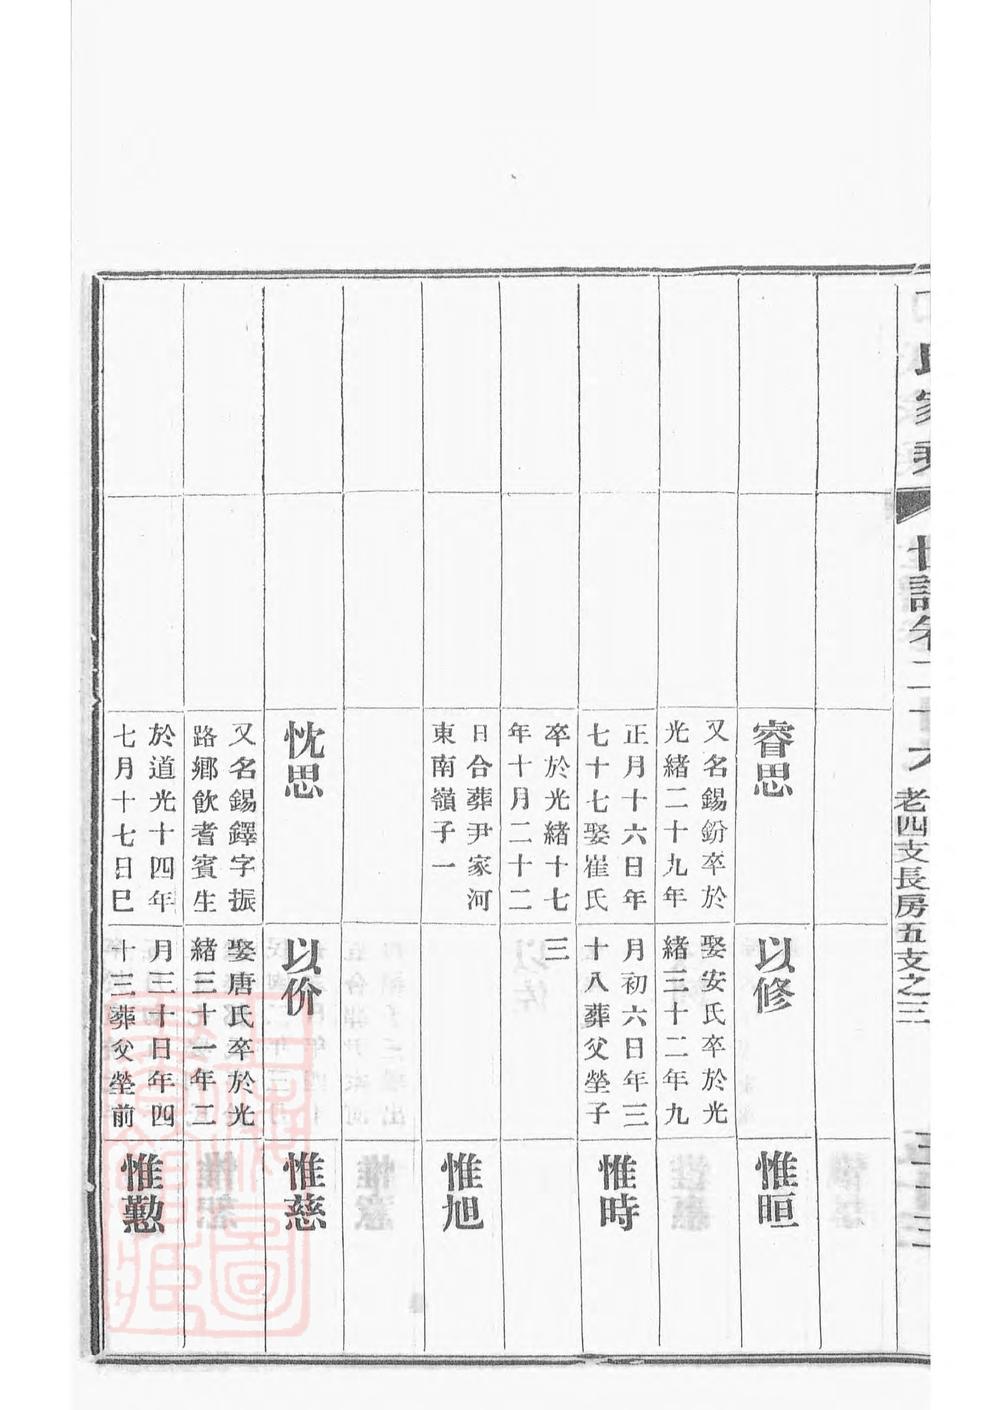 氏家乘
世譜卷二十六
老四支長房五支之三
三十三
睿思
又名錫鈖卒於
光緒二十九年
正月十六日年
七十七娶崔氏
卒於光緒十七
年十月二十二
日合葬尹家河
東南嶺子一
忱思
又名錫鐸字振
路鄉飲耆賓生
於道光十四年
七月十七日巳
以修
娶安氏卒於光
緒三十二年九
月初六日年三
十八葬父塋子
三
以价
娶唐氏卒於光
緒三十一年二
月三十日年四
十三葬父塋前
惟晅
惟時
惟旭
惟慈
惟懃
上海圖書館藏